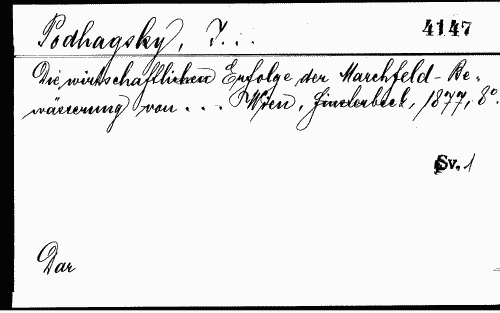 Podhagsky, J...
4147
Die wirtschaftlichen Erfolge der Marchfeld-Be-
wässerung von ... Wien, Finsterbeck, 1877, 8°.
Sv. 1
Dar